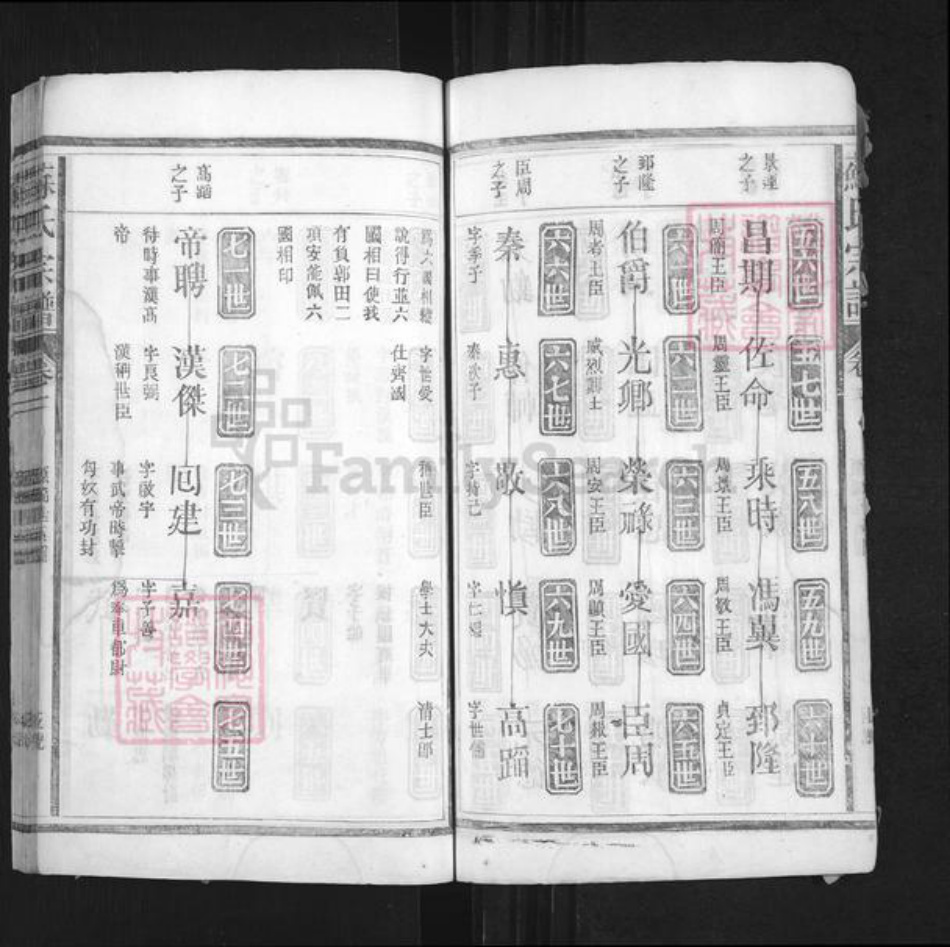 蘇氏宗譜
景運之子
五六世
昌期
周簡王臣
五七世
佐命
周靈王臣
五八世
乘時
周景王臣
五九世
馮異
周敬王臣
六十世
郅隆
貞定王臣
郅隆之子
六一世
伯爵
周考王臣
六二世
光卿
威烈謨士
六三世
榮祿
周安王臣
六四世
愛國
周顯王臣
六五世
臣周
周赧王臣
臣周之子
六六世
秦
字季子
爲六國相
說得行並六
國相曰使我
有負郭田二
頃安能佩六
國相印
六七世
惠
秦次子
字世愛
仕齊國
六八世
敬
字持己
稱世臣
六九世
慎
學士大夫
七十世
高蹈
字世儒
清士郎
高蹈之子
七一世
帝聘
待時事漢高
帝
七二世
漢傑
字良弼
漢稱世臣
七三世
囘建
字啟宇
事武帝時擊
匈奴有功封
七四世
嘉
字子善
爲奉車都尉
七五世
蘇氏宗譜
FamilySearch